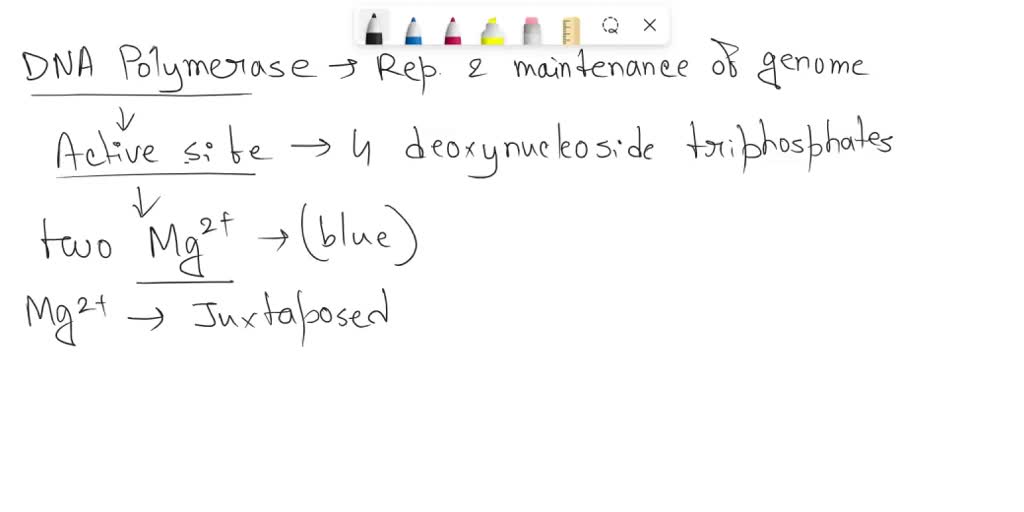 DNA Polymerase → Rep. & maintenance of genome
↓
Active site → 4 deoxynucleoside triphosphates
↓
two Mg²⁺ → (blue)
Mg²⁺ → Juxtaposed